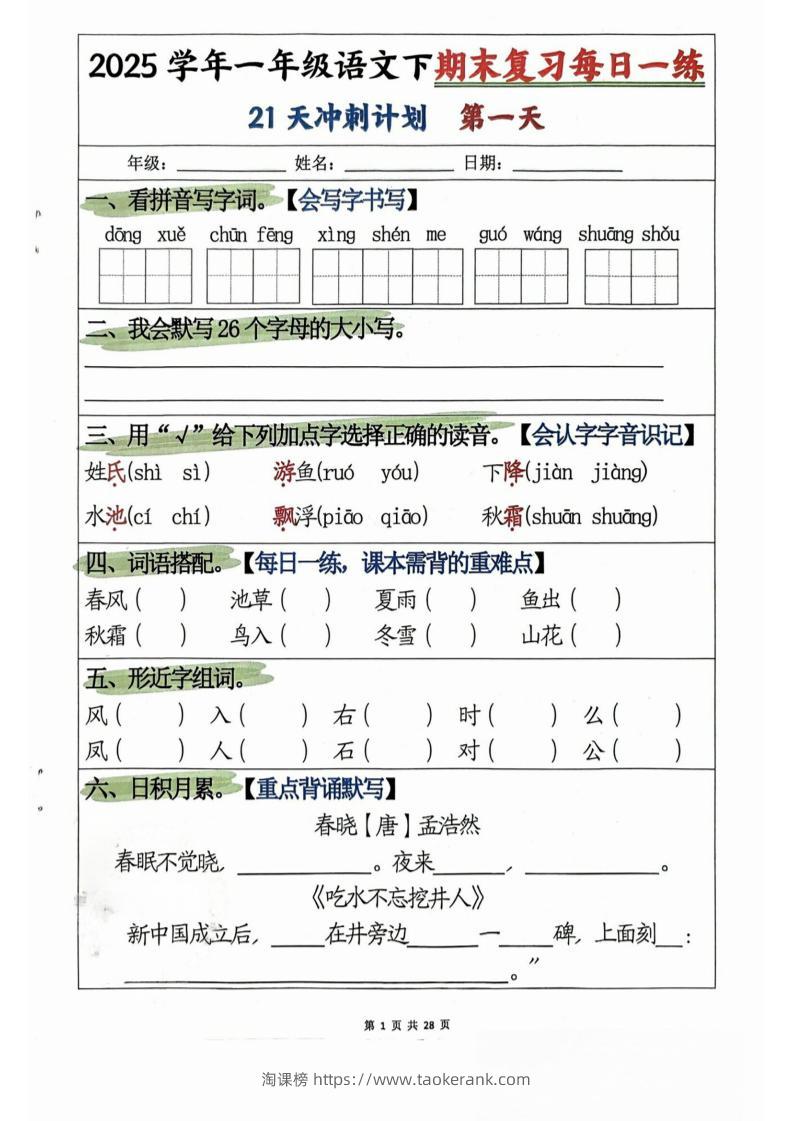 2025 学年一年级语文下期末复习每日一练
21 天冲刺计划 第一天
年级：____________ 姓名：____________ 日期：____________
一、看拼音写字词。【会写字书写】
dōng xuě chūn fēng xìng shén me guó wáng shuāng shǒu
二、我会默写 26 个字母的大小写。
三、用“√”给下列加点字选择正确的读音。【会认字字音识记】
姓氏(shì sì) 游鱼(ruó yóu) 下降(jiàn jiàng)
水池(cí chí) 飘浮(piāo qiāo) 秋霜(shuān shuāng)
四、词语搭配。【每日一练，课本需背的重难点】
春风（ ） 池草（ ） 夏雨（ ） 鱼出（ ）
秋霜（ ） 鸟入（ ） 冬雪（ ） 山花（ ）
五、形近字组词。
风（ ） 入（ ） 右（ ） 时（ ） 么（ ）
凤（ ） 人（ ） 石（ ） 对（ ） 公（ ）
六、日积月累。【重点背诵默写】
春晓【唐】孟浩然
春眠不觉晓，____________。夜来______，____________。
《吃水不忘挖井人》
新中国成立后，_____在井旁边______一_____碑，上面刻__：
____________________________。”
第 1 页 共 28 页
淘课榜 https://www.taokerank.com